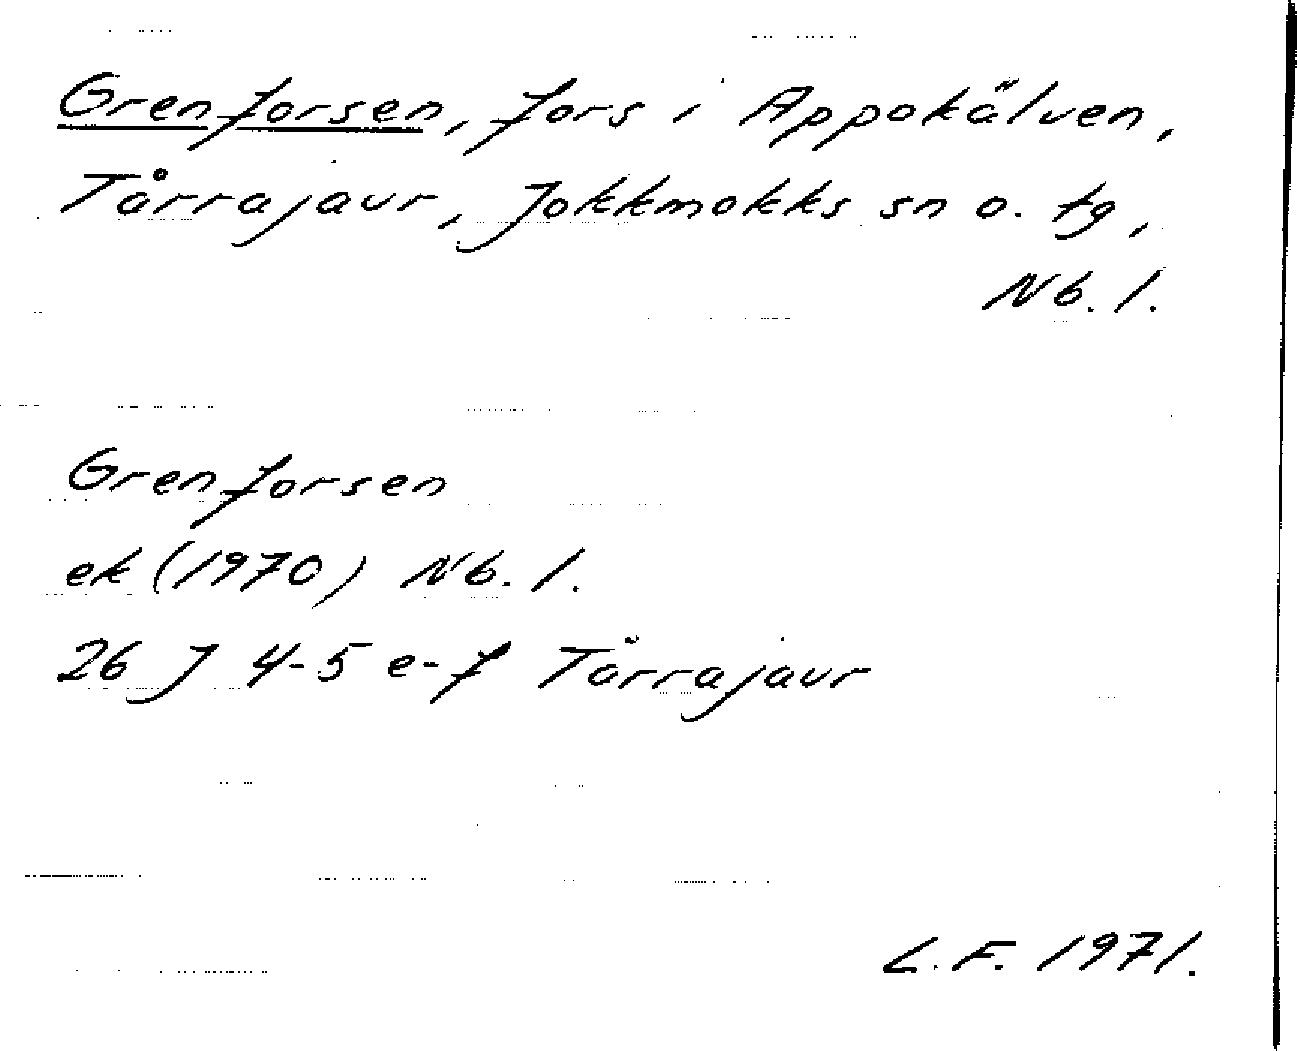 Grenforsen, fors i Appokälven,
Tårrajaur, Jokkmokks sn o. tg,
Nb. l.
Grenforsen
ek (1970) Nb. l.
26 J 4-5 e-f Tårrajaur
L.F. 1971.